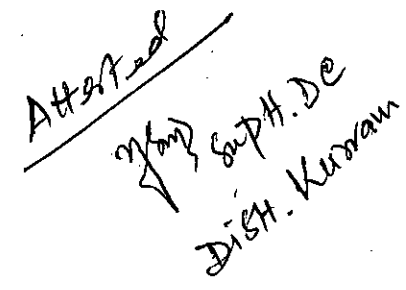 Attested
Suptt. DC
Distt. Kurram